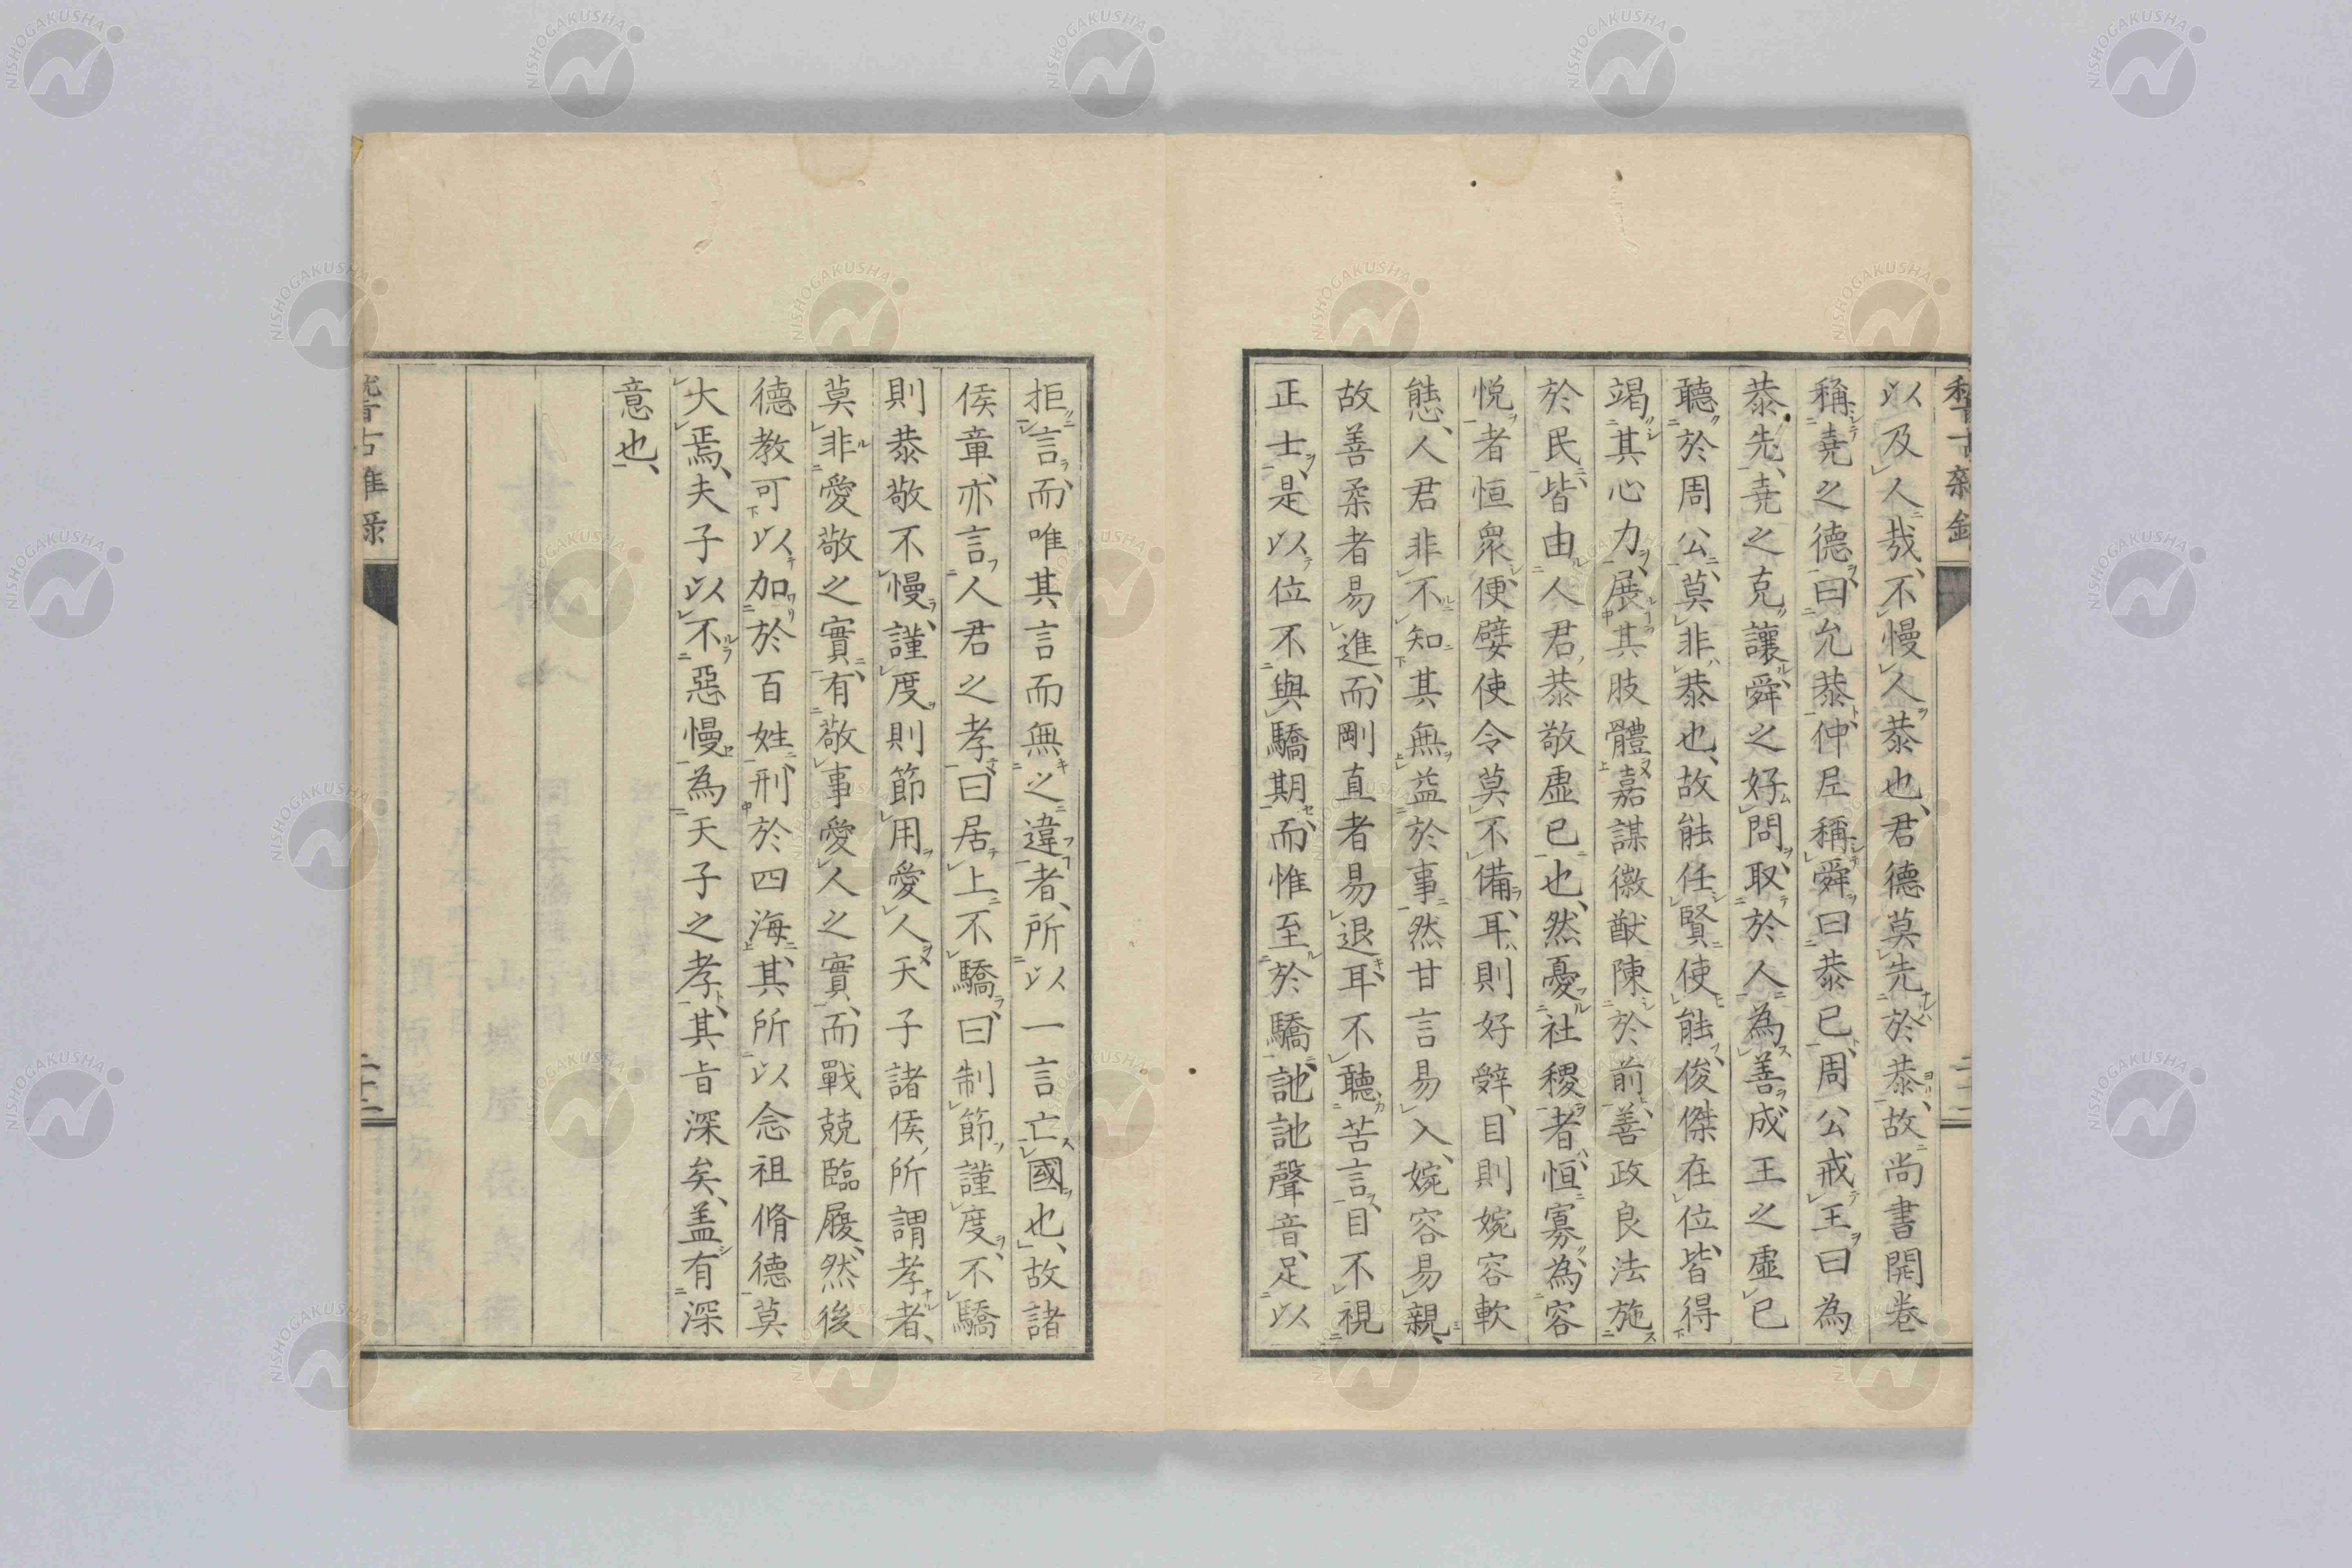 以及人哉、不慢人恭也、君德莫先於恭、故尚書開卷
稱堯之德、曰允恭、仲尼稱舜曰恭已、周公戒王曰為
恭先、堯之克讓、舜之好問、取於人為善、成王之虛已
聽於周公、莫非恭也、故能任賢使能、俊傑在位、皆得
竭其心力、展其肢體、嘉謀徽猷陳於前、善政良法施
於民、皆由人君恭敬虛已也、然憂社稷者、恒寡、為容
悅者恒衆、便嬖使令莫不備耳、則好辭、目則婉容軟
態、人君非不知其無益於事、然甘言易入、婉容易親、
故善柔者易進、而剛直者易退耳、不聽苦言、目不視
正士、是以位不與驕期、而惟至於驕、訑訑聲音、足以
拒言、而唯其言而無之違者、所以一言亡國也、故諸
侯章、亦言人君之孝、曰居上不驕、曰制節謹度、不驕
則恭敬不慢、謹度則節用愛人、天子諸侯、所謂孝者、
莫非愛敬之實、有敬事愛人之實、而戰兢臨履、然後
德教可以加於百姓、刑於四海、其所以念祖脩德莫
大焉、夫子以不惡慢為天子之孝、其旨深矣、盖有深
意也、